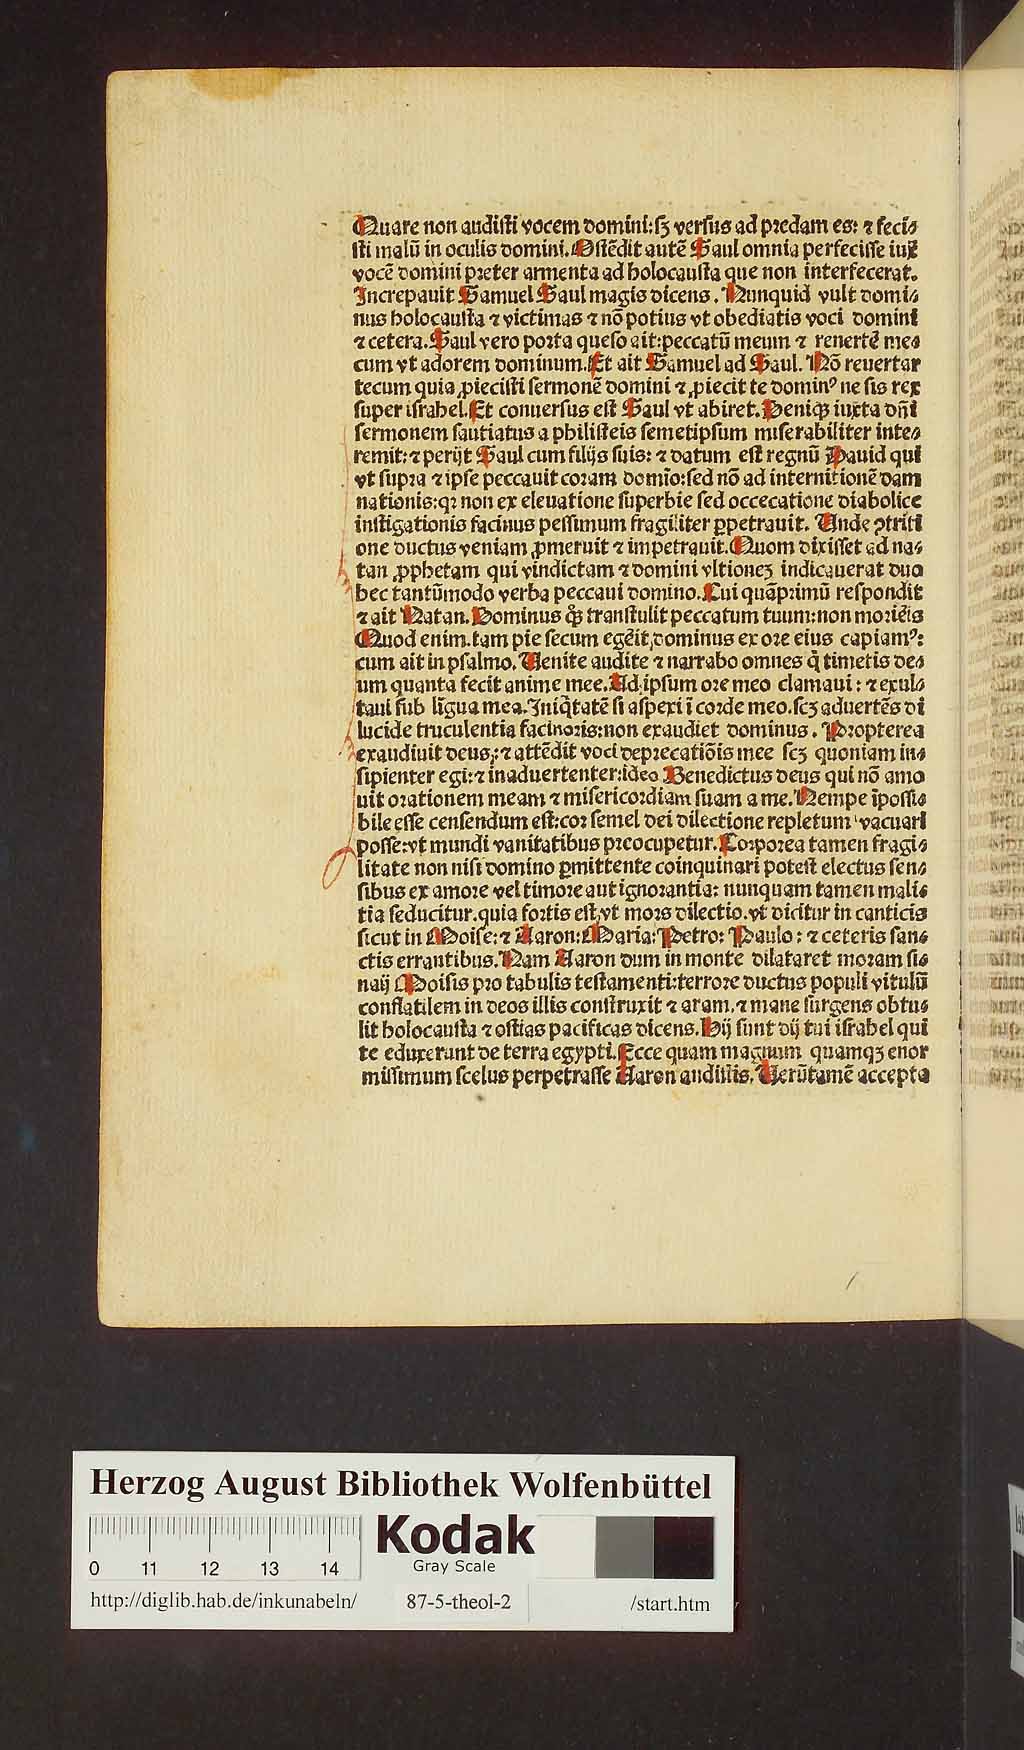 Quare non audisti vocem domini: sꝫ versus ad predam es: ⁊ feci⸗
sti malū in oculis domini. Ostēdit autē Saul omnia perfecisse iux̄
vocē domini preter armenta ad holocausta que non interfecerat.
Increpauit Samuel Saul magis dicens. Nunquid vult domi⸗
nus holocausta ⁊ victimas ⁊ nō potius vt obediatis voci domini
⁊ cetera. Saul vero porta queso ait: peccatū meum ⁊ reuertē me⸗
cum vt adorem dominum. Et ait Samuel ad Saul. Nō reuertar
tecum quia ꝓiecisti sermonē domini ⁊ ꝓiecit te dominꝰ ne sis rex
super israhel. Et conuersus est Saul vt abiret. Deniqꝫ iuxta dn̄i
sermonem sautiatus a philisteis semetipsum miserabiliter inte⸗
remit: ⁊ perijt Saul cum filijs suis: ⁊ datum est regnū Dauid qui
vt supra ⁊ ipse peccauit coram domio: sed nō ad internitionē dam
nationis: qꝛ non ex eleuatione superbie sed occecatione diabolice
instigationis facinus pessimum fragiliter ꝑpetrauit. Unde ꝯtriti
one ductus veniam ꝓmeruit ⁊ impetrauit. Quom dixisset ad na⸗
tan ꝓphetam qui vindictam ⁊ domini vltioneꝫ indicauerat duo
hec tantūmodo verba peccaui domino. Cui quāprimū respondit
⁊ ait Natan. Dominus qꝫ transtulit peccatum tuum: non moriēis
Quod enim tam pie secum egēit dominus ex ore eius capiamꝰ:
cum ait in psalmo. Uenite audite ⁊ narrabo omnes q̄ timetis de⸗
um quanta fecit anime mee. Ad ipsum ore meo clamaui: ⁊ exul⸗
taui sub līgua mea. Iniq̄tatē si aspexi ī corde meo. scꝫ aduertēs di
lucide truculentia facinoris: non exaudiet dominus. Propterea
exaudiuit deus: ⁊ attēdit voci deprecatiōis mee scꝫ quoniam in⸗
sipienter egi: ⁊ inaduertenter: ideo Benedictus deus qui nō amo
uit orationem meam ⁊ misericordiam suam a me. Nempe īpossi⸗
bile esse censendum est: cor semel dei dilectione repletum vacuari
posse: vt mundi vanitatibus preocupetur. Corporea tamen fragi⸗
litate non nisi domino ꝑmittente coinquinari potest electus sen⸗
sibus ex amore vel timore aut ignorantia: nunquam tamen malic
tia seducitur. quia fortis est vt mors dilectio. vt dicitur in canticis
sicut in Moise: ⁊ Aaron: Maria: Petro: Paulo: ⁊ ceteris san⸗
ctis errantibus. Nam Aaron dum in monte dilataret moram si⸗
naij Moisis pro tabulis testamenti: terrore ductus populi vitulū
conflatilem in deos illis construxit ⁊ aram. ⁊ mane surgens obtu⸗
lit holocausta ⁊ ostias pacificas dicens. Hij sunt dij tui israhel qui
te eduxerunt de terra egypti. Ecce quam magnum quamqꝫ enor
missimum scelus perpetrasse Aaron audistis. Uerūtamē accepta
Herzog August Bibliothek Wolfenbüttel
Kodak
Gray Scale
0 11 12 13 14
http://diglib.hab.de/inkunabeln/ 87-5-theol-2 /start.htm